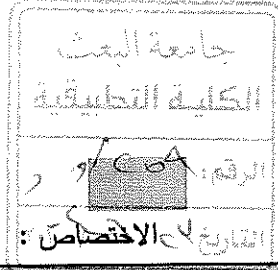 جامعة البعث
الكلية التطبيقية
الرقم:
التاريخ
الاختصاص :